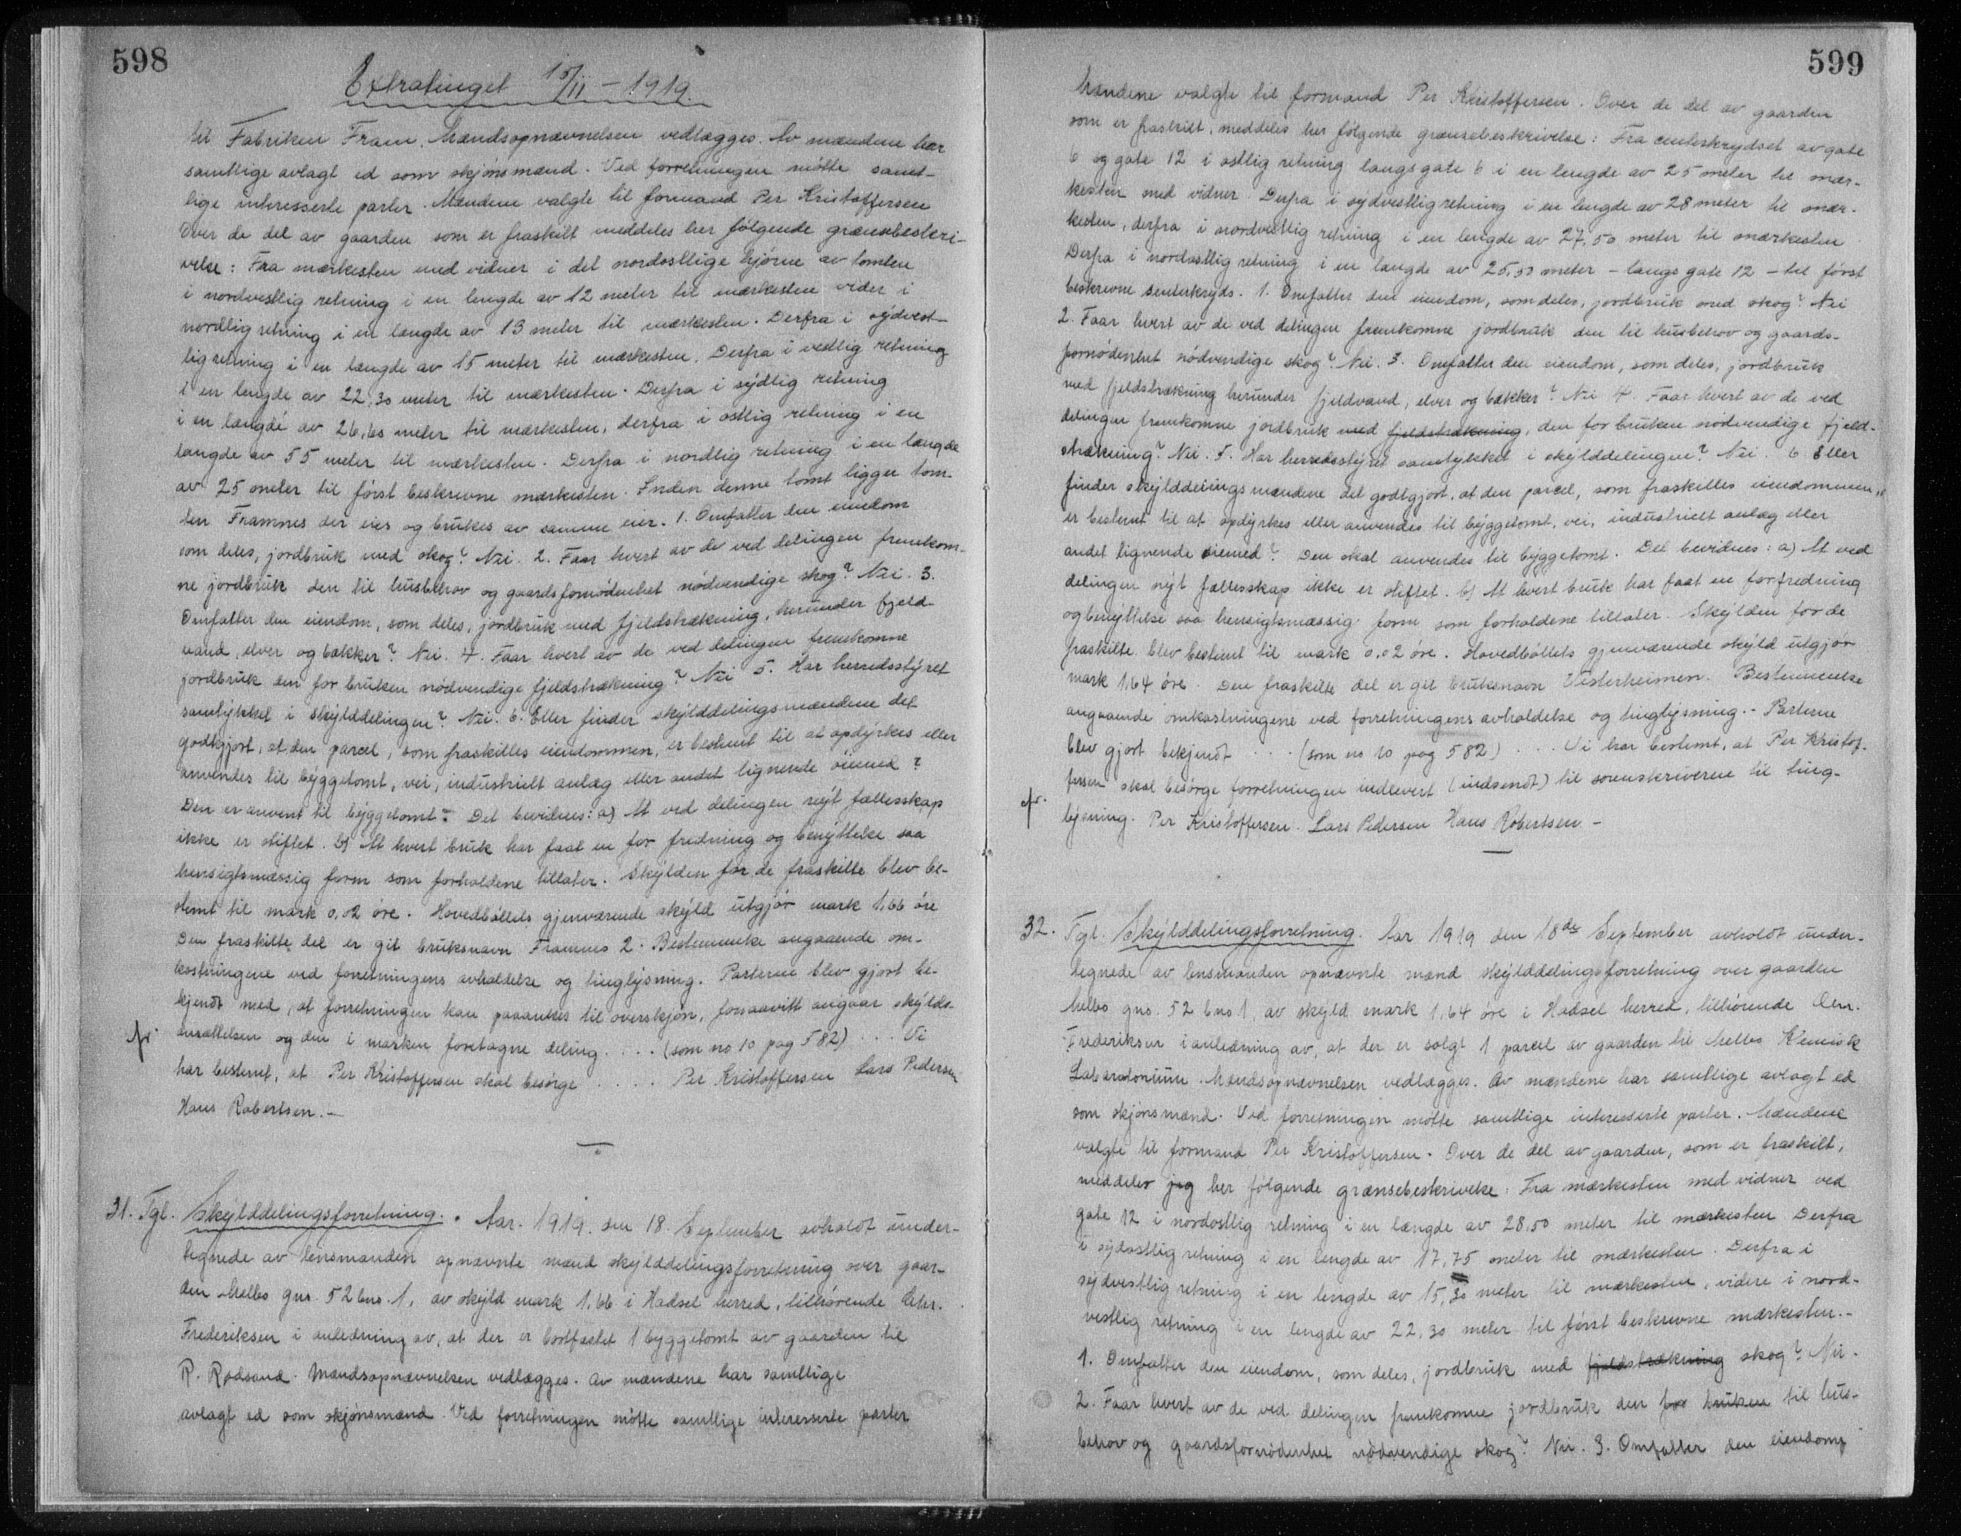 598
Extratinget 15/11 - 1919.
til Fabriken Fram. Mændsopnævnelsen vedlægges. Av mændene har
samtlige avlagt ed som skjønsmænd. Ved forretningen møtte samt-
lige interesserte parter. Mændene valgte til formand Per Kristoffersen
Over de del av gaarden som er fraskilt meddeles her følgende grænsebeskri-
velse: Fra mærkesten med vidner i det nordostlige hjørne av tomten
i nordvestlig retning i en lengde av 12 meter til mærkesten vider i
nordlig retning i en længde av 13 meter til mærkesten. Derfra i sydvest-
lig retning i en længde av 15 meter til mærkesten. Derfra i vestlig retning
i en lengde av 22,30 meter til mærkesten. Derfra i sydlig retning
i en længde av 26,60 meter til mærkesten, derfra i ostlig retning i en
længde av 55 meter til mærkesten. Derfra i nordlig retning i en længde
av 25 meter til først beskrevne mærkesten. Inden denne tomt ligger tom-
ten Framnes der eies og brukes av samme eier. 1. Omfatter den eiendom
som deles, jordbruk med skog? Nei. 2. Faar hvert av de ved delingen fremkom-
ne jordbruk den til husbehov og gaardsfornødenhet nødvendige skog? Nei. 3.
Omfatter den eiendom, som deles, jordbruk med fjeldstrækning, herunder fjeld-
vand, elver og bækker? Nei. 4. Faar hvert av de ved delingen fremkomne
jordbruk den for bruken nødvendige fjeldstrækning? Nei 5. Har herredsstyret
samtykket i skylddelingen? Nei. 6. Eller finder skylddelingsmændene det
godtgjort, at den parcel, som fraskilles eiendommen, er bestemt til at opdyrkes eller
anvendes til byggetomt, vei, industrielt anlæg eller andet lignende øiemed?
Den er anvent til byggetomt. Det bevidnes: a) At ved delingen nyt fællesskap
ikke er stiftet. b) At hvert bruk har faat en for fredning og benyttelse saa
hensigtsmæssig form som forholdene tillater. Skylden for de fraskilte blev be-
stemt til mark 0,02 øre. Hovedbøllets gjenværende skyld utgjør mark 1,66 øre
Den fraskilte del er git bruksnavn Framnes 2. Bestemmelse angaaende om-
kostningene ved forretningens avholdelse og tinglysning. Parterne blev gjort be-
kjendt med, at forretningen kan paaankes til overskjøn, forsaavitt angaar skylds-
ansættelsen og den i marken foretagne deling. . . . (som no 10 pag 582) . . . Vi
har bestemt, at Per Kristoffersen skal besørge . . . . . Per Kristoffersen Lars Pedersen
Hans Robertsen. -
31. Tgl. Skylddelingsforretning. Aar. 1919. den 18. September avholdt under-
tegnede av lensmanden opnævnte mænd skylddelingsforretning over gaar-
den Melbo gno. 52 bno. 1, av skyld mark 1,66 i Hadsel herred, tilhørende Chr.
Frederiksen i anledning av, at der er bortfæstet 1 byggetomt av gaarden til
R. Rødsand. Mændsopnævnelsen vedlægges. Av mændene har samtlige
avlagt ed som skjønsmænd. Ved forretningen møtte samtlige interesserte parter
599
Mændene valgte til formand Per Kristoffersen. Over de del av gaarden
som er fraskilt, meddeles her følgende grænsebeskrivelse: Fra centerkrydset av gate
6 og gate 12 i ostlig retning langs gate 6 i en lengde av 25 meter til mær-
kesten med vidner. Derfra i sydvestlig retning i en lengde av 28 meter til mær-
kesten, derfra i nordvestlig retning i en lengde av 27,50 meter til mærkesten
Derfra i nordostlig retning i en længde av 25,50 meter - langs gate 12 - til først
beskrevne senterkryds. 1. Omfatter den eiendom, som deles, jordbruk med skog? Nei
2. Faar hvert av de ved delingen fremkomne jordbruk den til husbehov og gaards-
fornødenhet nødvendige skog? Nei. 3. Omfatter den eiendom, som deles, jordbruk
med fjeldstrækning herunder fjeldvand, elver og bækker? Nei 4. Faar hvert av de ved
delingen fremkomne jordbruk med fjeldstrækning, den for bruken nødvendige fjeld-
strækning? Nei. 5. Har herredsstyret samtykket i skylddelingen? Nei. 6 Eller
finder skylddelingsmændene det godtgjort, at den parcel, som fraskilles eiendommen,
er bestemt til at opdyrkes eller anvendes til byggetomt, vei, industrielt anlæg eller
andet lignende øiemed? Den skal anvendes til byggetomt. Det bevidnes: a) At ved
delingen nyt fællesskap ikke er stiftet. b) At hvert bruk har faat en for fredning
og benyttelse saa hensigtsmæssig form som forholdene tillater. Skylden for de
fraskilte blev bestemt til mark 0,02 øre. Hovedbøllets gjenværende skyld utgjør
mark 1,64 øre. Den fraskilte del er git bruksnavn Vesterheimen. Bestemmelse
angaaende omkostningene ved forretningens avholdelse og tinglysning. - Parterne
blev gjort bekjendt . . . (som no 10 pag 582) . . . Vi har bestemt, at Per Kristof-
fersen skal besørge forretningen indlevert (indsendt) til sorenskriveren til ting-
lysning. Per Kristoffersen. Lars Pedersen Hans Robertsen -
32. Tgl. Skylddelingsforretning. Aar 1919 den 18de September avholdt under-
tegnede av lensmanden opnævnte mænd skylddelingsforretning over gaarden
Melbo gno. 52 bno 1, av skyld mark 1,64 øre i Hadsel herred, tilhørende Chr.
Frederiksen i anledning av, at der er solgt 1 parcel av gaarden til Melbo Kemisk
Laboratorium. Mændsopnævnelsen vedlægges. Av mændene har samtlige avlagt ed
som skjønsmænd. Ved forretningen møtte samtlige interesserte parter. Mændene
valgte til formand Per Kristoffersen. Over de del av gaarden, som er fraskilt,
meddeler jeg her følgende grænsebeskrivelse: Fra mærkesten med vidner ved
gate 12 i nordostlig retning i en længde av 28,50 meter til mærkesten Derfra
i sydostlig retning i en lengde av 17,75 meter til mærkesten. Derfra i
sydvestlig retning i en lengde av 15,30 meter til mærkesten, videre i nord-
vestlig retning i en lengde av 22,30 meter til først beskrevne mærkesten. -
1. Omfatter den eiendom, som deles, jordbruk med fjeldstrækning skog? Nei.
2. Faar hvert av de ved delingen fremkomne jordbruk den for bruken til hus-
behov og gaardsfornødenhet nødvendige skog? Nei. 3. Omfatter den eiendom